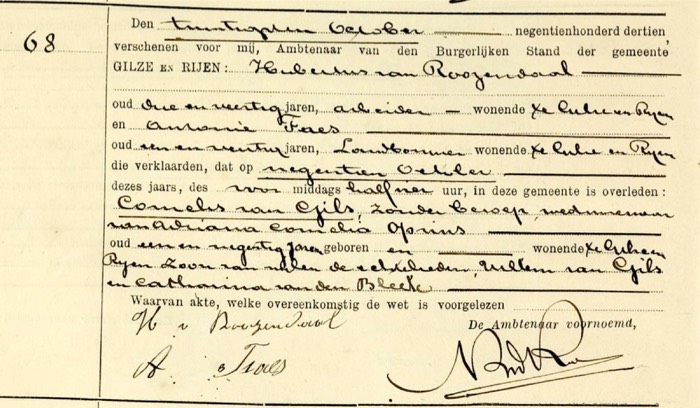 68
Den twintigsten October negentienhonderd dertien,
verschenen voor mij, Ambtenaar van den Burgerlijken Stand der gemeente
GILZE EN RIJEN: Hubertus van Roozendaal
oud drie en veertig jaren, arbeider wonende te Gilze en Rijen
en Antonie Faes
oud een en veertig jaren, Landbouwer wonende te Gilze en Rijen
die verklaarden, dat op negentien October
dezes jaars, des voor middags half vier uur, in deze gemeente is overleden:
Cornelis van Gils, zonder beroep, weduwnaar
van Adriana Cornelia
oud een en negentig jaren geboren en wonende te Gilze en
Rijen zoon van wijlen de echtelieden, Willem van Gils
en Catharina van den Bleek
Waarvan akte, welke overeenkomstig de wet is voorgelezen
H v Roozendaal De Ambtenaar voornoemd,
A Faes